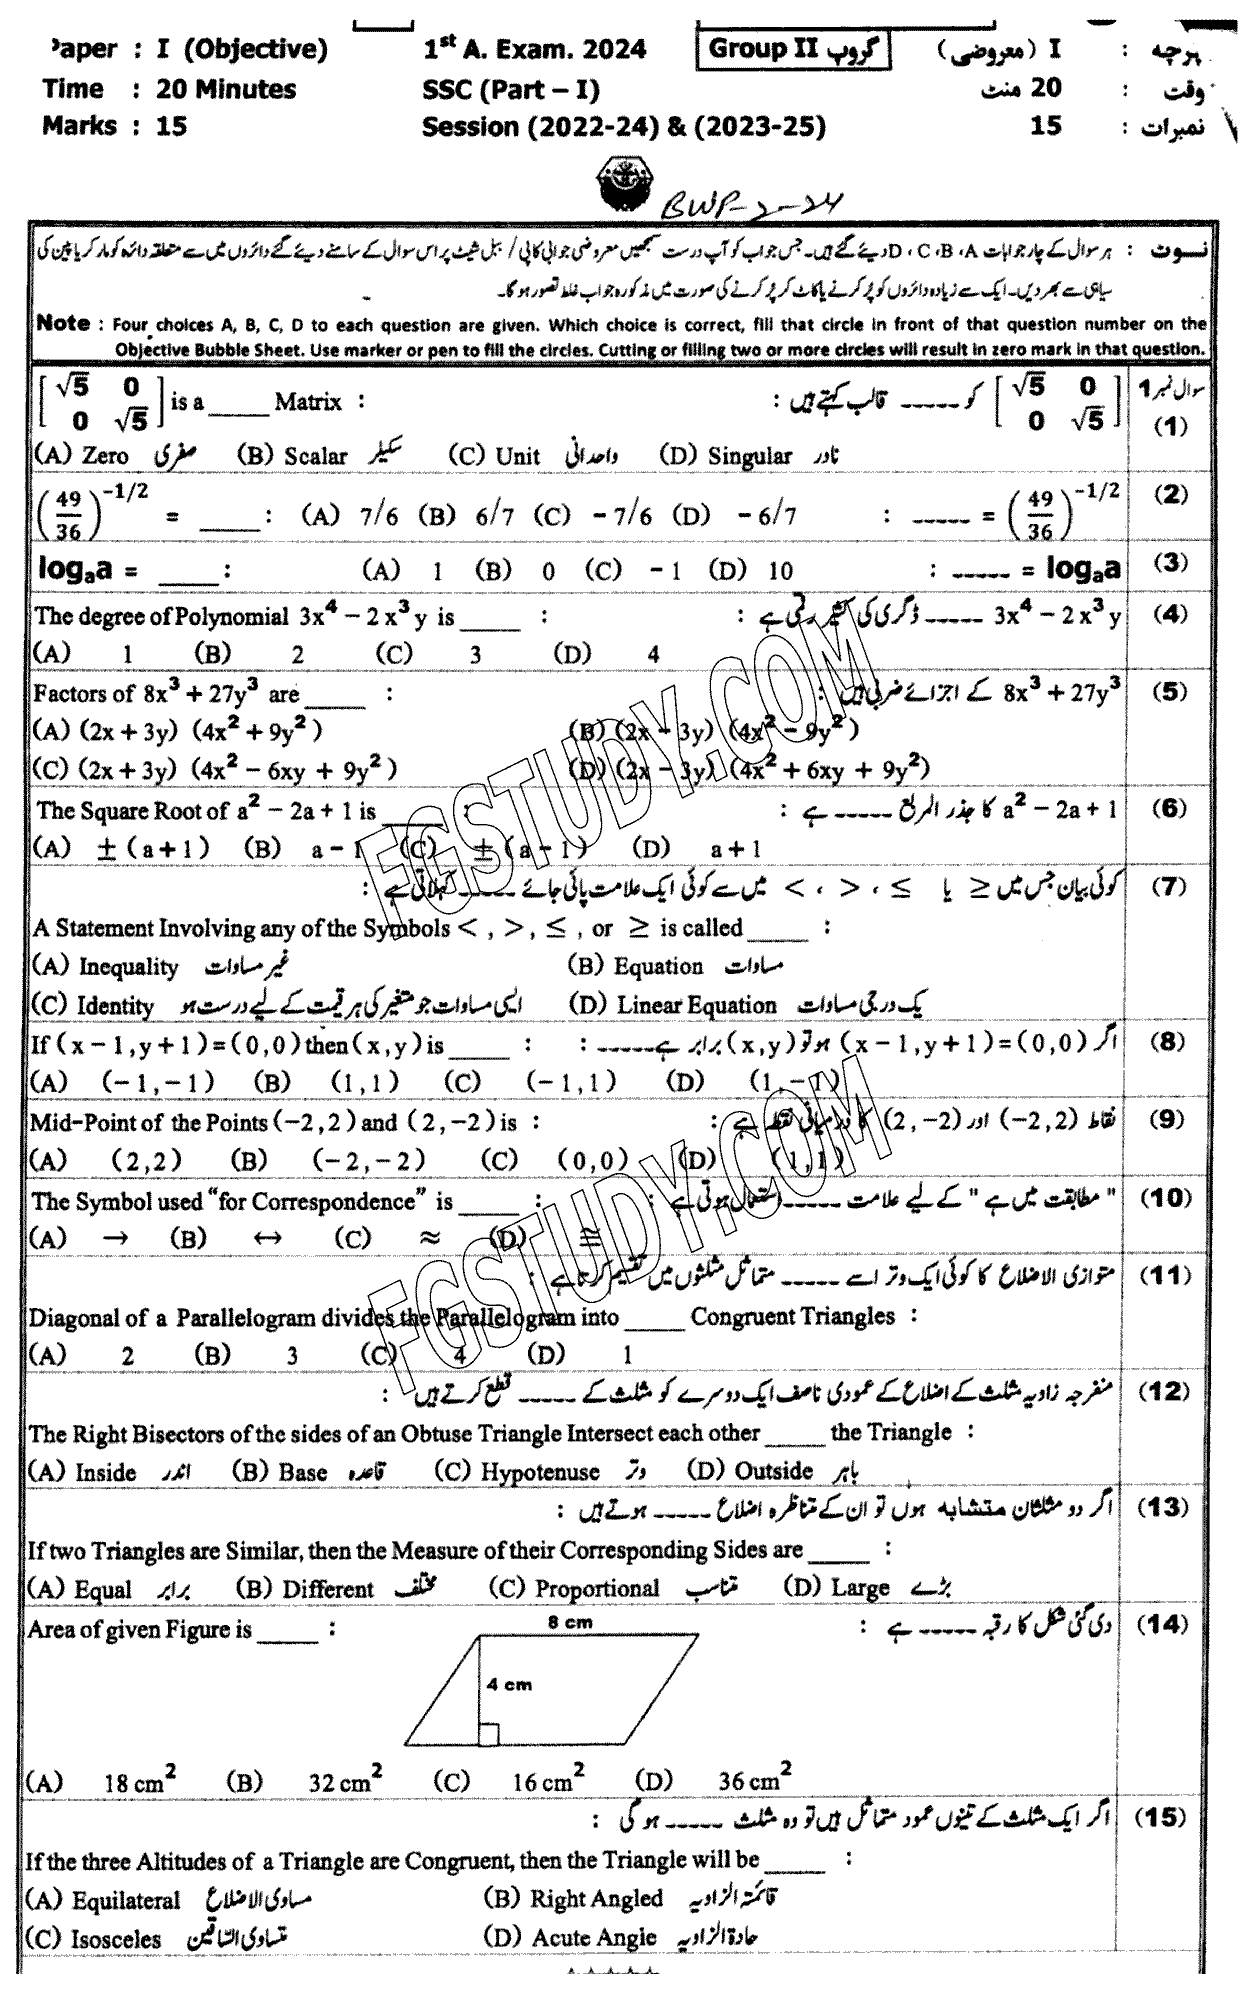 Paper : I (Objective) 1st A. Exam. 2024 Group II گروپ پرچہ : I (معروضی)
Time : 20 Minutes SSC (Part – I) وقت : 20 منٹ
Marks : 15 Session (2022-24) & (2023-25) نمبرات : 15
BWP-2-24
نوٹ : ہر سوال کے چار جوابات A، B، C، D دیئے گئے ہیں۔ جس جواب کو آپ درست سمجھیں معروضی جوابی کاپی / ببل شیٹ پر اس سوال کے سامنے دیئے گئے دائروں میں سے متعلقہ دائرہ کو مارکر یا پین کی
سیاہی سے بھر دیں۔ ایک سے زیادہ دائروں کو پُر کرنے یا کاٹ کر پُر کرنے کی صورت میں مذکورہ جواب غلط تصور ہوگا۔
Note : Four choices A, B, C, D to each question are given. Which choice is correct, fill that circle in front of that question number on the
Objective Bubble Sheet. Use marker or pen to fill the circles. Cutting or filling two or more circles will result in zero mark in that question.
سوال نمبر 1
[√5 0; 0 √5] is a _____ Matrix : [√5 0; 0 √5] کو ----- قالب کہتے ہیں : (1)
(A) Zero صفری (B) Scalar سکیلر (C) Unit واحدانی (D) Singular نادر
(49/36)^-1/2 = _____ : (A) 7/6 (B) 6/7 (C) - 7/6 (D) - 6/7 : ----- = (49/36)^-1/2 (2)
logₐa = _____ : (A) 1 (B) 0 (C) - 1 (D) 10 : ----- = logₐa (3)
The degree of Polynomial 3x⁴ – 2x³y is _____ : 3x⁴ – 2x³y ----- ڈگری کی کثیر رقمی ہے : (4)
(A) 1 (B) 2 (C) 3 (D) 4
Factors of 8x³ + 27y³ are _____ : 8x³ + 27y³ کے اجزائے ضربی ہیں : (5)
(A) (2x + 3y) (4x² + 9y²) (B) (2x – 3y) (4x² – 9y²)
(C) (2x + 3y) (4x² – 6xy + 9y²) (D) (2x – 3y) (4x² + 6xy + 9y²)
The Square Root of a² – 2a + 1 is _____ : a² – 2a + 1 کا جذر المربع ----- ہے : (6)
(A) ± (a + 1) (B) a – 1 (C) ± (a – 1) (D) a + 1
کوئی بیان جس میں ≥ یا ≤ ، > ، < میں سے کوئی ایک علامت پائی جائے ----- کہلاتی ہے : (7)
A Statement Involving any of the Symbols < , > , ≤ , or ≥ is called _____ :
(A) Inequality غیر مساوات (B) Equation مساوات
(C) Identity ایسی مساوات جو متغیر کی ہر قیمت کے لیے درست ہو (D) Linear Equation یک درجی مساوات
If (x – 1, y + 1) = (0,0) then (x,y) is _____ : اگر (x – 1, y + 1) = (0,0) ہو تو (x,y) برابر ہے ----- : (8)
(A) (–1,–1) (B) (1,1) (C) (–1,1) (D) (1,–1)
Mid-Point of the Points (–2,2) and (2,–2) is : نقاط (–2,2) اور (2,–2) کا درمیانی نقطہ ہے : (9)
(A) (2,2) (B) (–2,–2) (C) (0,0) (D) (1,1)
The Symbol used “for Correspondence” is _____ : " مطابقت میں ہے " کے لیے علامت ----- استعمال ہوتی ہے : (10)
(A) → (B) ↔ (C) ≈ (D) ≅
متوازی الاضلاع کا کوئی ایک وتر اسے ----- متماثل مثلثوں میں تقسیم کرتا ہے : (11)
Diagonal of a Parallelogram divides the Parallelogram into _____ Congruent Triangles :
(A) 2 (B) 3 (C) 4 (D) 1
منفرجہ زاویہ مثلث کے اضلاع کے عمودی ناصف ایک دوسرے کو مثلث کے ----- قطع کرتے ہیں : (12)
The Right Bisectors of the sides of an Obtuse Triangle Intersect each other _____ the Triangle :
(A) Inside اندر (B) Base قاعدہ (C) Hypotenuse وتر (D) Outside باہر
اگر دو مثلثان متشابہ ہوں تو ان کے متناظرہ اضلاع ----- ہوتے ہیں : (13)
If two Triangles are Similar, then the Measure of their Corresponding Sides are _____ :
(A) Equal برابر (B) Different مختلف (C) Proportional متناسب (D) Large بڑے
Area of given Figure is _____ : دی گئی شکل کا رقبہ ----- ہے : (14)
8 cm
4 cm
(A) 18 cm² (B) 32 cm² (C) 16 cm² (D) 36 cm²
اگر ایک مثلث کے تینوں عمود متماثل ہیں تو وہ مثلث ----- ہوگی : (15)
If the three Altitudes of a Triangle are Congruent, then the Triangle will be _____ :
(A) Equilateral مساوی الاضلاع (B) Right Angled قائمۃ الزاویہ
(C) Isosceles متساوی الساقین (D) Acute Angle حادۃ الزاویہ
FGSTUDY.COM
FGSTUDY.COM